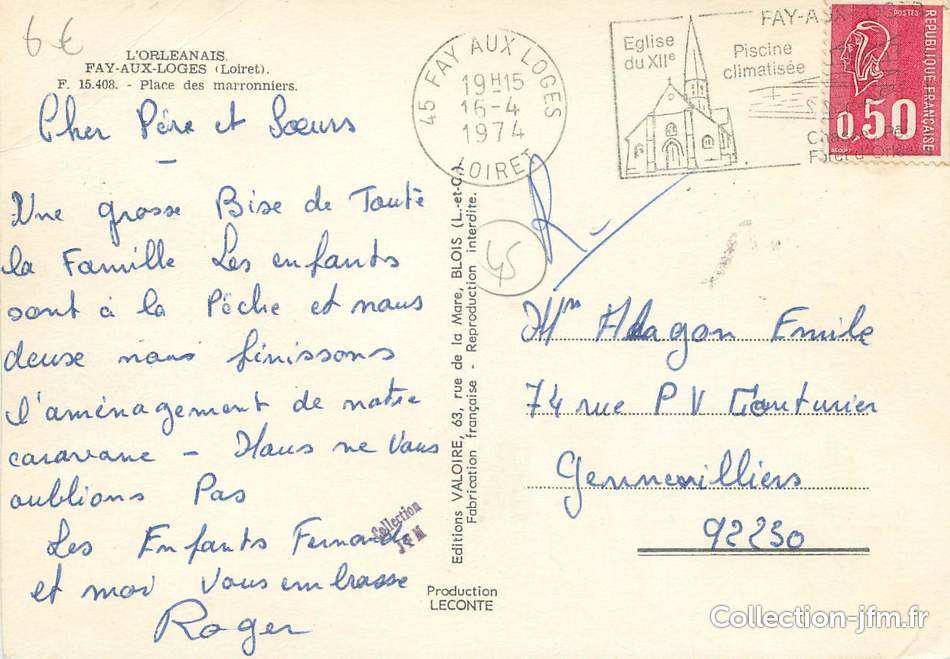 6 €
L'ORLEANAIS.
FAY-AUX-LOGES (Loiret).
F. 15.408. - Place des marronniers.
Cher Père et Soeurs
Une grosse Bise de Toute
la Famille Les enfants
sont à la Pêche et nous
deuse nous finissons
l'aménagement de notre
caravane - Nous ne Vous
oublions Pas
Les Enfants Fernande
et moi Vous embrasse
Roger
Collection
JFM
45 FAY AUX LOGES
19H15
16-4
1974
LOIRET
Eglise
du XIIe
FAY-AUX-LOGES
Piscine
climatisée
Forêt d'Orléans
POSTES
REPUBLIQUE FRANÇAISE
0,50
45
R-
Editions VALOIRE, 63, rue de la Mare, BLOIS (L.-et-C.)
Fabrication française - Reproduction interdite.
Production
LECONTE
Mr Adagon Emile
74 rue P V Couturier
Gennevilliers
92230
Collection-jfm.fr